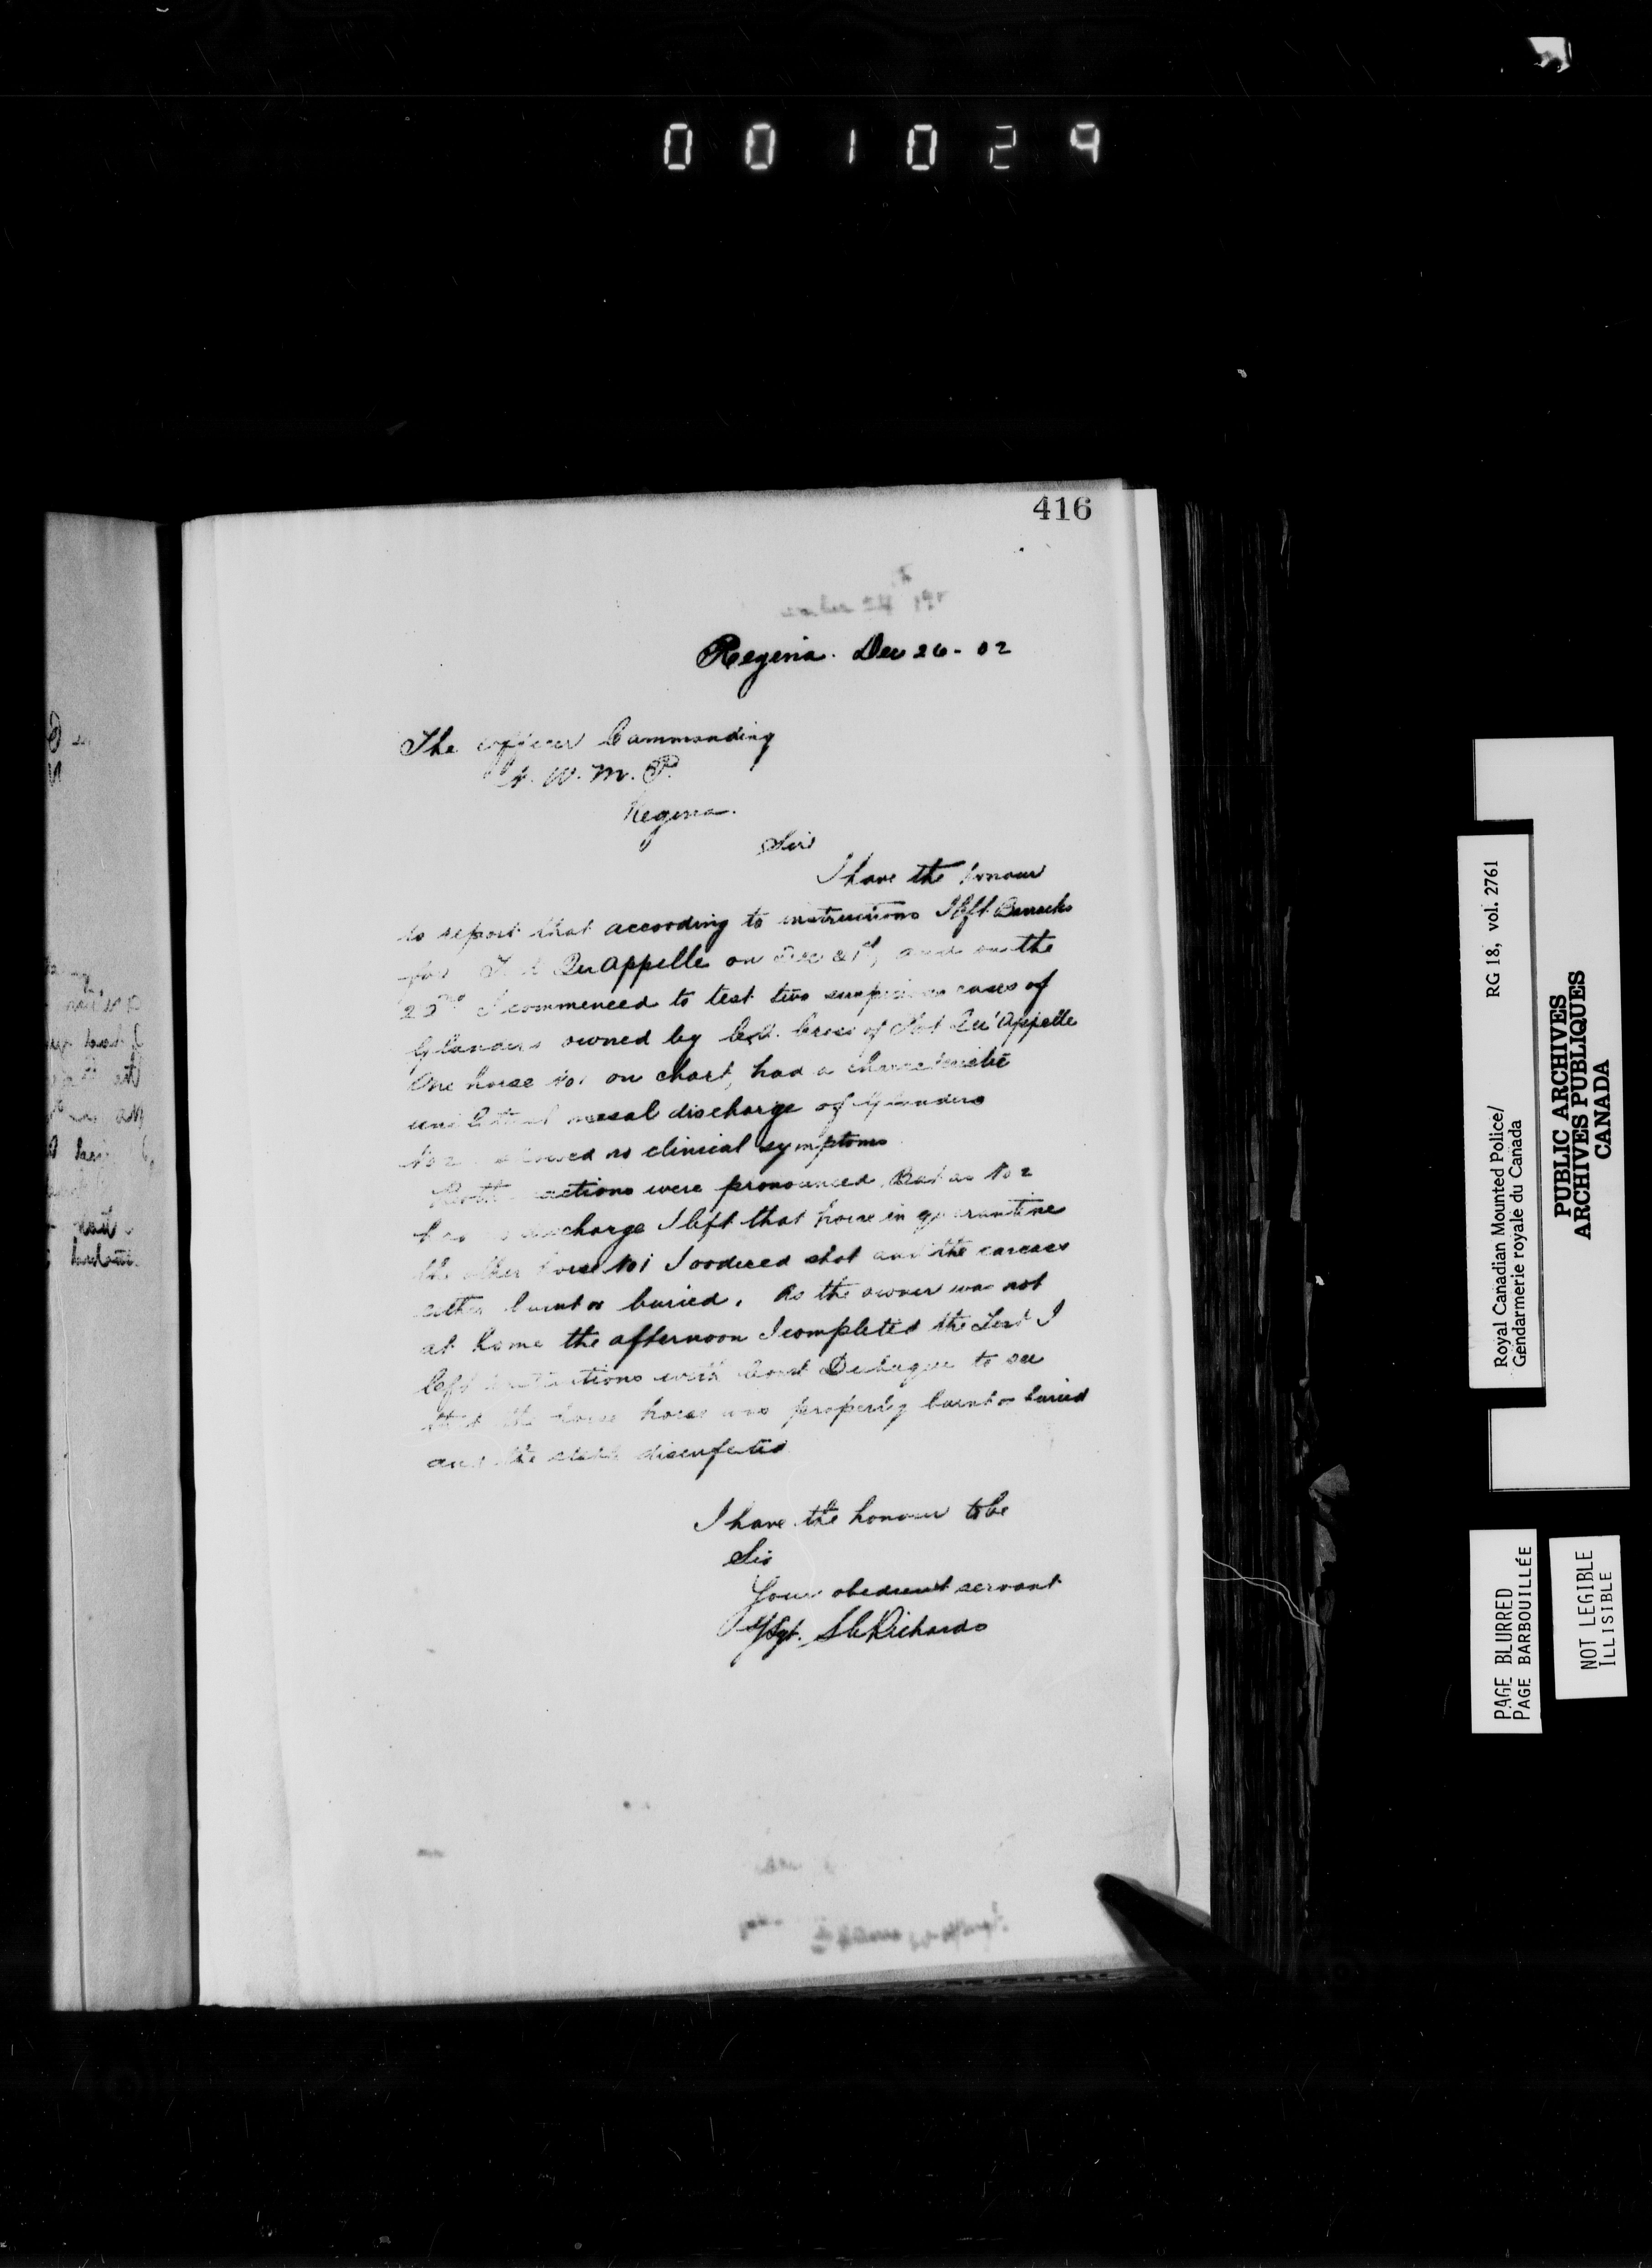 001029
416
Regina. Dec 26 - 02
The Officer Commanding
N. W. M. P.
Regina.
Sir
I have the honour
to report that according to instructions I left Barracks
for Qu Appelle on Dec 21st, and on the
22nd I commenced to test two suspicious cases of
Glanders owned by of Fort Qu'Appelle
One horse No 1 on chart, had a characteristic
unilateral nasal discharge of Glanders
No 2 showed no clinical symptoms
Both reactions were pronounced But as No 2
had no discharge I left that horse in quarantine
the other horse No 1 I oodered shot and the carcass
either burnt or buried. As the owner was not
at home the afternoon I completed the Test I
left instructions with Const to see
that the horse was properly burnt or buried
and the disinfected
I have the honour to be
Sir
Your obedient servant
Richards
Royal Canadian Mounted Police/ RG 18, vol. 2761
Gendarmerie royale du Canada
PUBLIC ARCHIVES
ARCHIVES PUBLIQUES
CANADA
PAGE BLURRED
PAGE BARBOUILLÉE
NOT LEGIBLE
ILLISIBLE